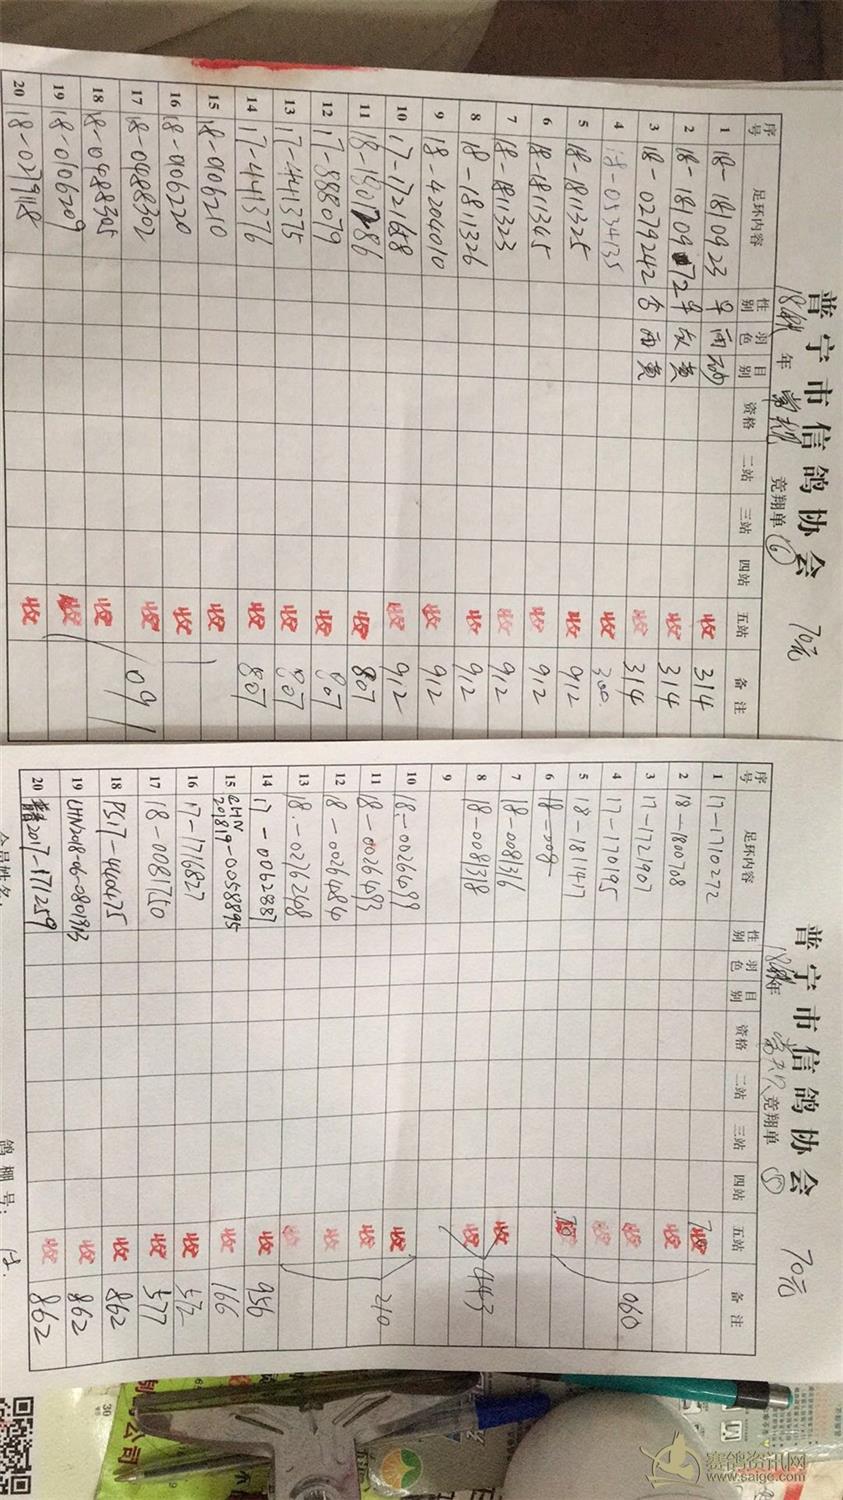 普宁市信鸽协会
70元
18秋 年 常规 竞翔单 ⑥
序号 足环内容 性别 羽色 目别 资格 二站 三站 四站 五站 备注
1 18-1810923 收 314
2 18-1810972 灰 黄 收 314
3 18-0279242 雨 黄 收 314
4 18-0534135 收 300
5 18-1811325 收 912
6 18-1811345 收 912
7 18-1811323 收 912
8 18-1811326 收 912
9 18-4204010 收 912
10 17-1721658 收 912
11 收 807
12 17-888079 收 807
13 17-441375 收 807
14 17-441376 收 807
15 18-0106210 收
16 18-0106220 收
17 18-0488302 收 091
18 18-0488305 收
19 18-0106209 收
20 18-0279118 收
普宁市信鸽协会
70元
18秋年 竞翔单 ⑤
序号 足环内容 性别 羽色 目别 资格 二站 三站 四站 五站 备注
1 17-1710272 收
2 18-1800708 收
3 17-1721907 收
4 17-1720195 收 060
5 18-1811417
6 18-008
7 18-0081316 收
8 18-0081318 收 443
9
10 18-0026499 收
11 18-0026493 收 210
12 18-0026484 收
13 18-0276268 收
14 17-0062887 收 956
15 CHN 201819-0058895 收 166
16 17-1716827 收
17 18-0081750 收 577
18 收 862
19 CHN2018-06-0801813 收 862
20 2017-171259 收 862
会员姓名
鸽棚号：
公司
30
赛鸽资讯网
www.saige.com